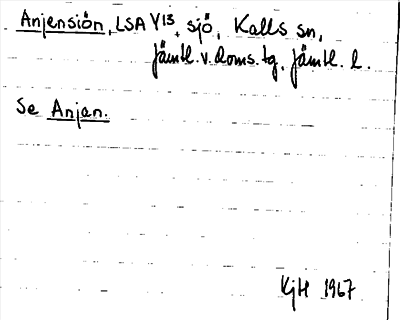 Anjensiön, LSA Y¹³, sjö, Kalls sn,
Jämtl. v. doms. tg, Jämtl. l.
Se Anjan.
KjH 1967